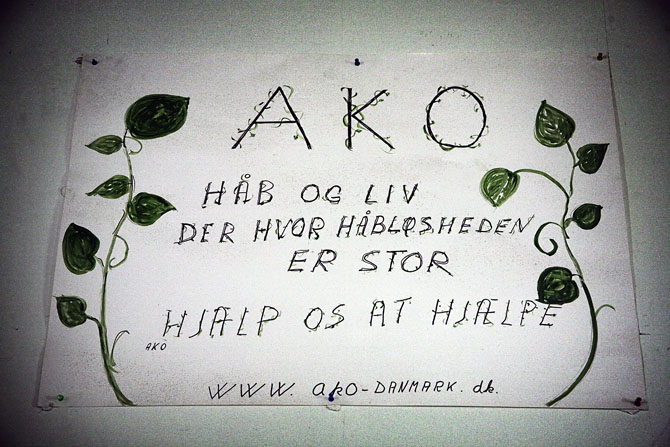 AKO
HÅB OG LIV
DER HVOR HÅBLØSHEDEN
ER STOR
HJÆLP OS AT HJÆLPE
AKO
WWW. ako-DANMARK.dk.